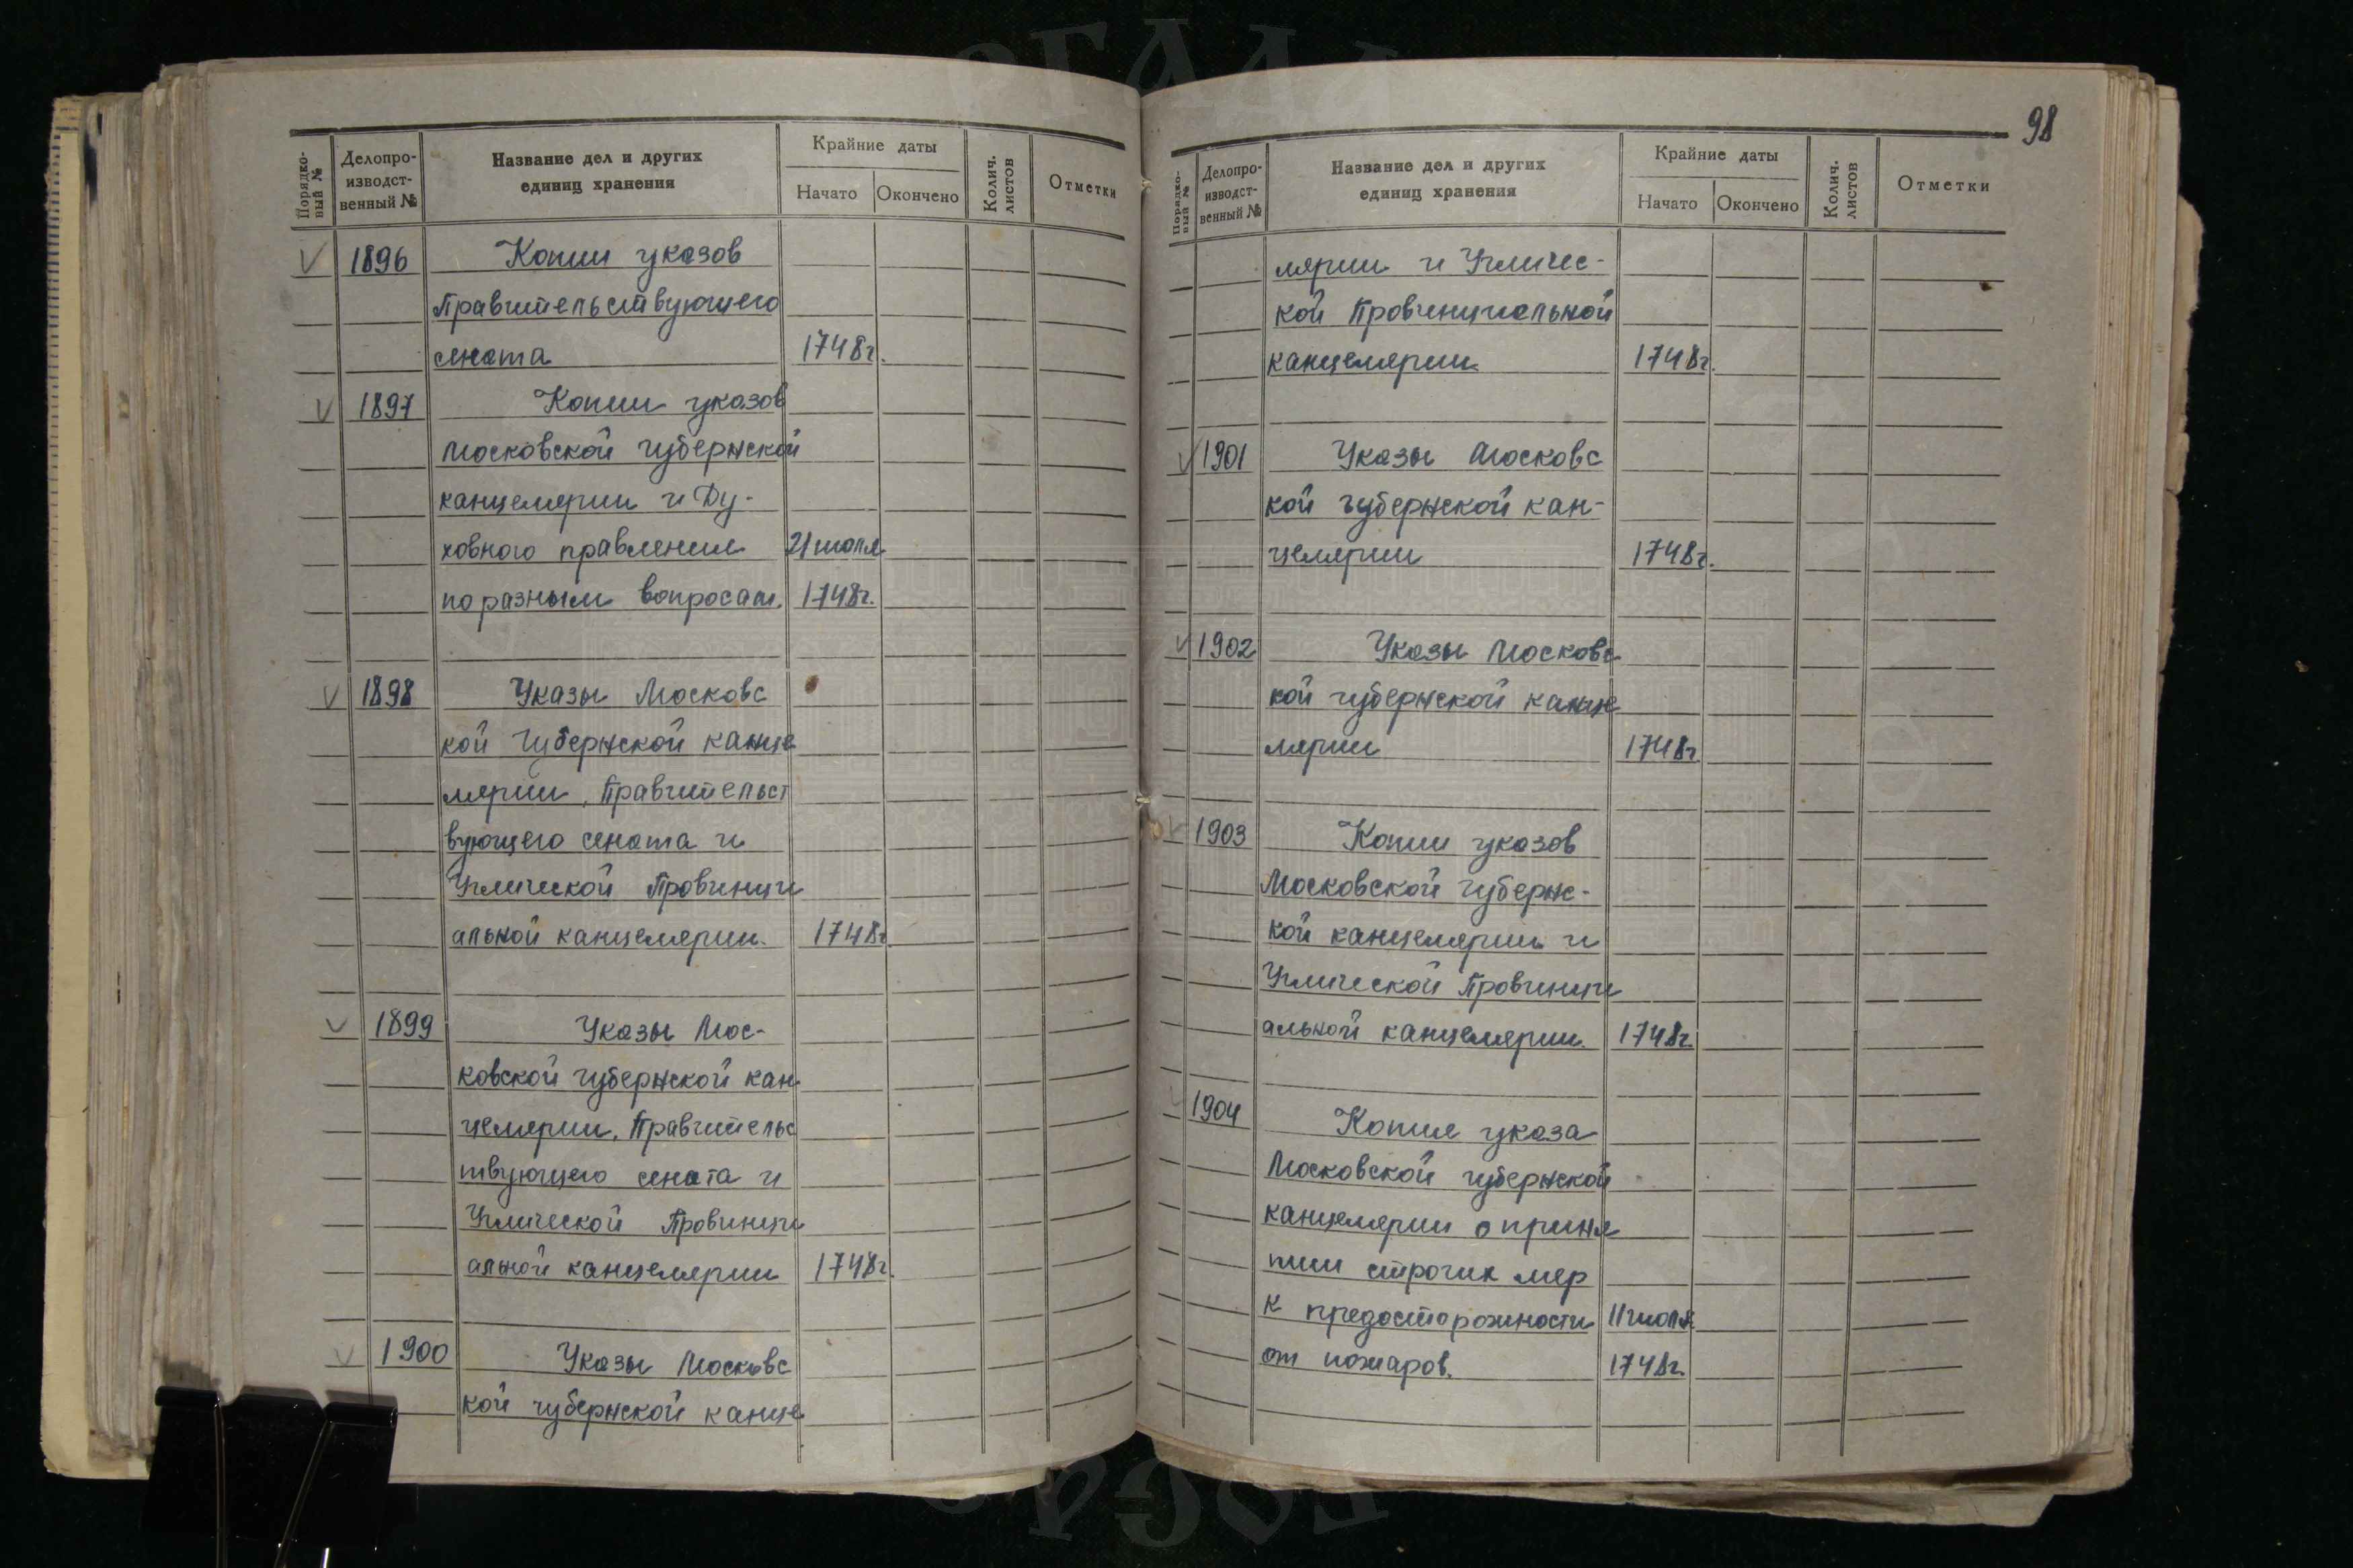 98
Порядко-
вый №
Делопро-
изводст-
венный №
Название дел и других
единиц хранения
Крайние даты
Начато
Окончено
Колич.
листов
Отметки
V 1896 Копии указов
Правительствующего
сената 1748г.
V 1897 Копии указов
Московской губернской
канцелярии и Ду-
ховного правления 21 июля
по разным вопросам. 1748г.
V 1898 Указы Московс
кой губернской канце
лярии, Правительст
вующего сената и
Углической Провинци
альной канцелярии. 1748г
V 1899 Указы Мос-
ковской губернской кан
целярии, Правительс
твующего сената и
Углической Провинци
альной канцелярии 1748г.
V 1900 Указы Московс
кой губернской канце
Порядко-
вый №
Делопро-
изводст-
венный №
Название дел и других
единиц хранения
Крайние даты
Начато
Окончено
Колич.
листов
Отметки
лярии и Угличес-
кой Провинциальной
канцелярии. 1748г.
V 1901 Указы Московс
кой губернской кан-
целярии 1748г.
V 1902 Указы Московс
кой губернской канце
лярии 1748г
V 1903 Копии указов
Московской губернс-
кой канцелярии и
Углической Провинци
альной канцелярии. 1748г.
V 1904 Копия указа
Московской губернской
канцелярии о приня
тии строгих мер
к предосторожности 11 июля
от пожаров. 1748г.
РГАДА